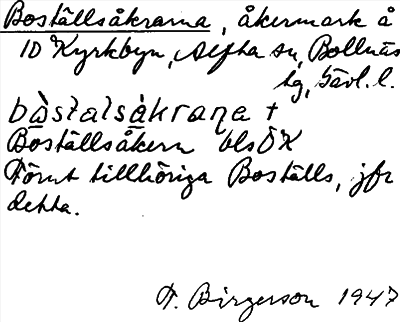 Boställsåkrarna, åkermark å
ID Kyrkbyn, Alfta sn, Bollnäs
tg, Gävl. l.
bɷ̀stalsåkraɳa +
Boställsåkern blsÖK
Förut tillhöriga Boställs, jfr
detta.
F. Birgerson 1947